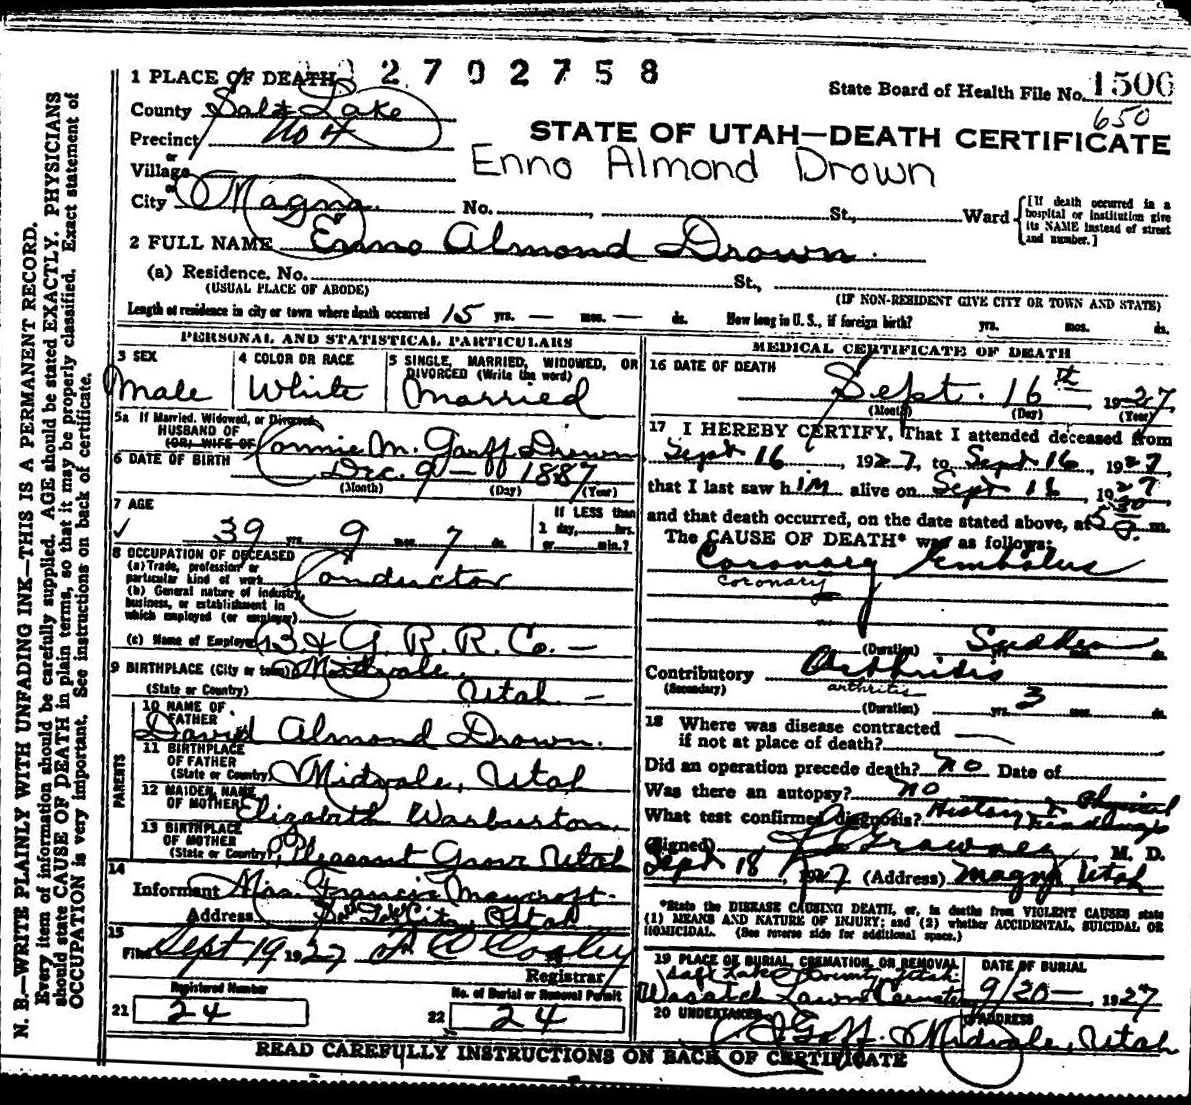 2702758
State Board of Health File No. 1506
650
1 PLACE OF DEATH
County Salt Lake
Precinct No 4
STATE OF UTAH—DEATH CERTIFICATE
Enno Almond Drown
or
Village
or
City Magna No. , St., Ward
[If death occurred in a hospital or institution give its NAME instead of street and number.]
2 FULL NAME Enno Almond Drown
(a) Residence. No. St.,
(USUAL PLACE OF ABODE) (IF NON-RESIDENT GIVE CITY OR TOWN AND STATE)
Length of residence in city or town where death occurred 15 yrs. — mos. — ds. How long in U. S., if foreign birth? yrs. mos. ds.
PERSONAL AND STATISTICAL PARTICULARS
3 SEX Male
4 COLOR OR RACE White
5 SINGLE, MARRIED, WIDOWED, OR DIVORCED (Write the word) Married
5a If Married, Widowed, or Divorced
HUSBAND OF
(OR) WIFE OF M. Goff Drown
6 DATE OF BIRTH Dec. 9 — 1887
(Month) (Day) (Year)
7 AGE
39 yrs. 9 mos. 7 ds.
If LESS than
1 day, hrs.
or min.?
8 OCCUPATION OF DECEASED
(a) Trade, profession or
particular kind of work Conductor
(b) General nature of industry,
business, or establishment in
which employed (or employer)
(c) Name of Employer B & G. R. R. Co. —
9 BIRTHPLACE (City or town) Midvale,
(State or Country) Utah —
PARENTS
10 NAME OF FATHER David Almond Drown.
11 BIRTHPLACE OF FATHER
(State or Country) Midvale, Utah
12 MAIDEN NAME OF MOTHER Elizabeth Warburton
13 BIRTHPLACE OF MOTHER
(State or Country) Pleasant Grove Utah
14
Informant Mrs. Francis
Address Salt Lake City, Utah
15
Filed Sept 19 1927
Registrar
Registered Number
21 24
No. of Burial or Removal Permit
22 24
MEDICAL CERTIFICATE OF DEATH
16 DATE OF DEATH
Sept. 16th 1927
(Month) (Day) (Year)
17 I HEREBY CERTIFY, That I attended deceased from
Sept 16, 1927, to Sept 16, 1927
that I last saw him alive on Sept 16 1927
and that death occurred, on the date stated above, at 5 30 m.
The CAUSE OF DEATH* was as follows:
Coronary Embolus
coronary
(Duration) Sudden ds.
Contributory Arthritis
(Secondary) arthritis
(Duration) yrs. 3 mos. ds.
18 Where was disease contracted
if not at place of death? —
Did an operation precede death? no Date of
Was there an autopsy? no
What test confirmed diagnosis? History & Physical Findings
(Signed) M. D.
Sept 18, 1927 (Address) Magna, Utah
*State the DISEASE CAUSING DEATH, or, in deaths from VIOLENT CAUSES state
(1) MEANS AND NATURE OF INJURY; and (2) whether ACCIDENTAL, SUICIDAL OR
HOMICIDAL. (See reverse side for additional space.)
19 PLACE OF BURIAL, CREMATION, OR REMOVAL
Salt Lake County Utah.
Wasatch Lawn Cemetery
DATE OF BURIAL
9/20 — 1927
20 UNDERTAKER Goff
ADDRESS Midvale, Utah
READ CAREFULLY INSTRUCTIONS ON BACK OF CERTIFICATE
N. B.—WRITE PLAINLY WITH UNFADING INK—THIS IS A PERMANENT RECORD.
Every item of information should be carefully supplied. AGE should be stated EXACTLY. PHYSICIANS
should state CAUSE OF DEATH in plain terms, so that it may be properly classified. Exact statement of
OCCUPATION is very important. See instructions on back of certificate.